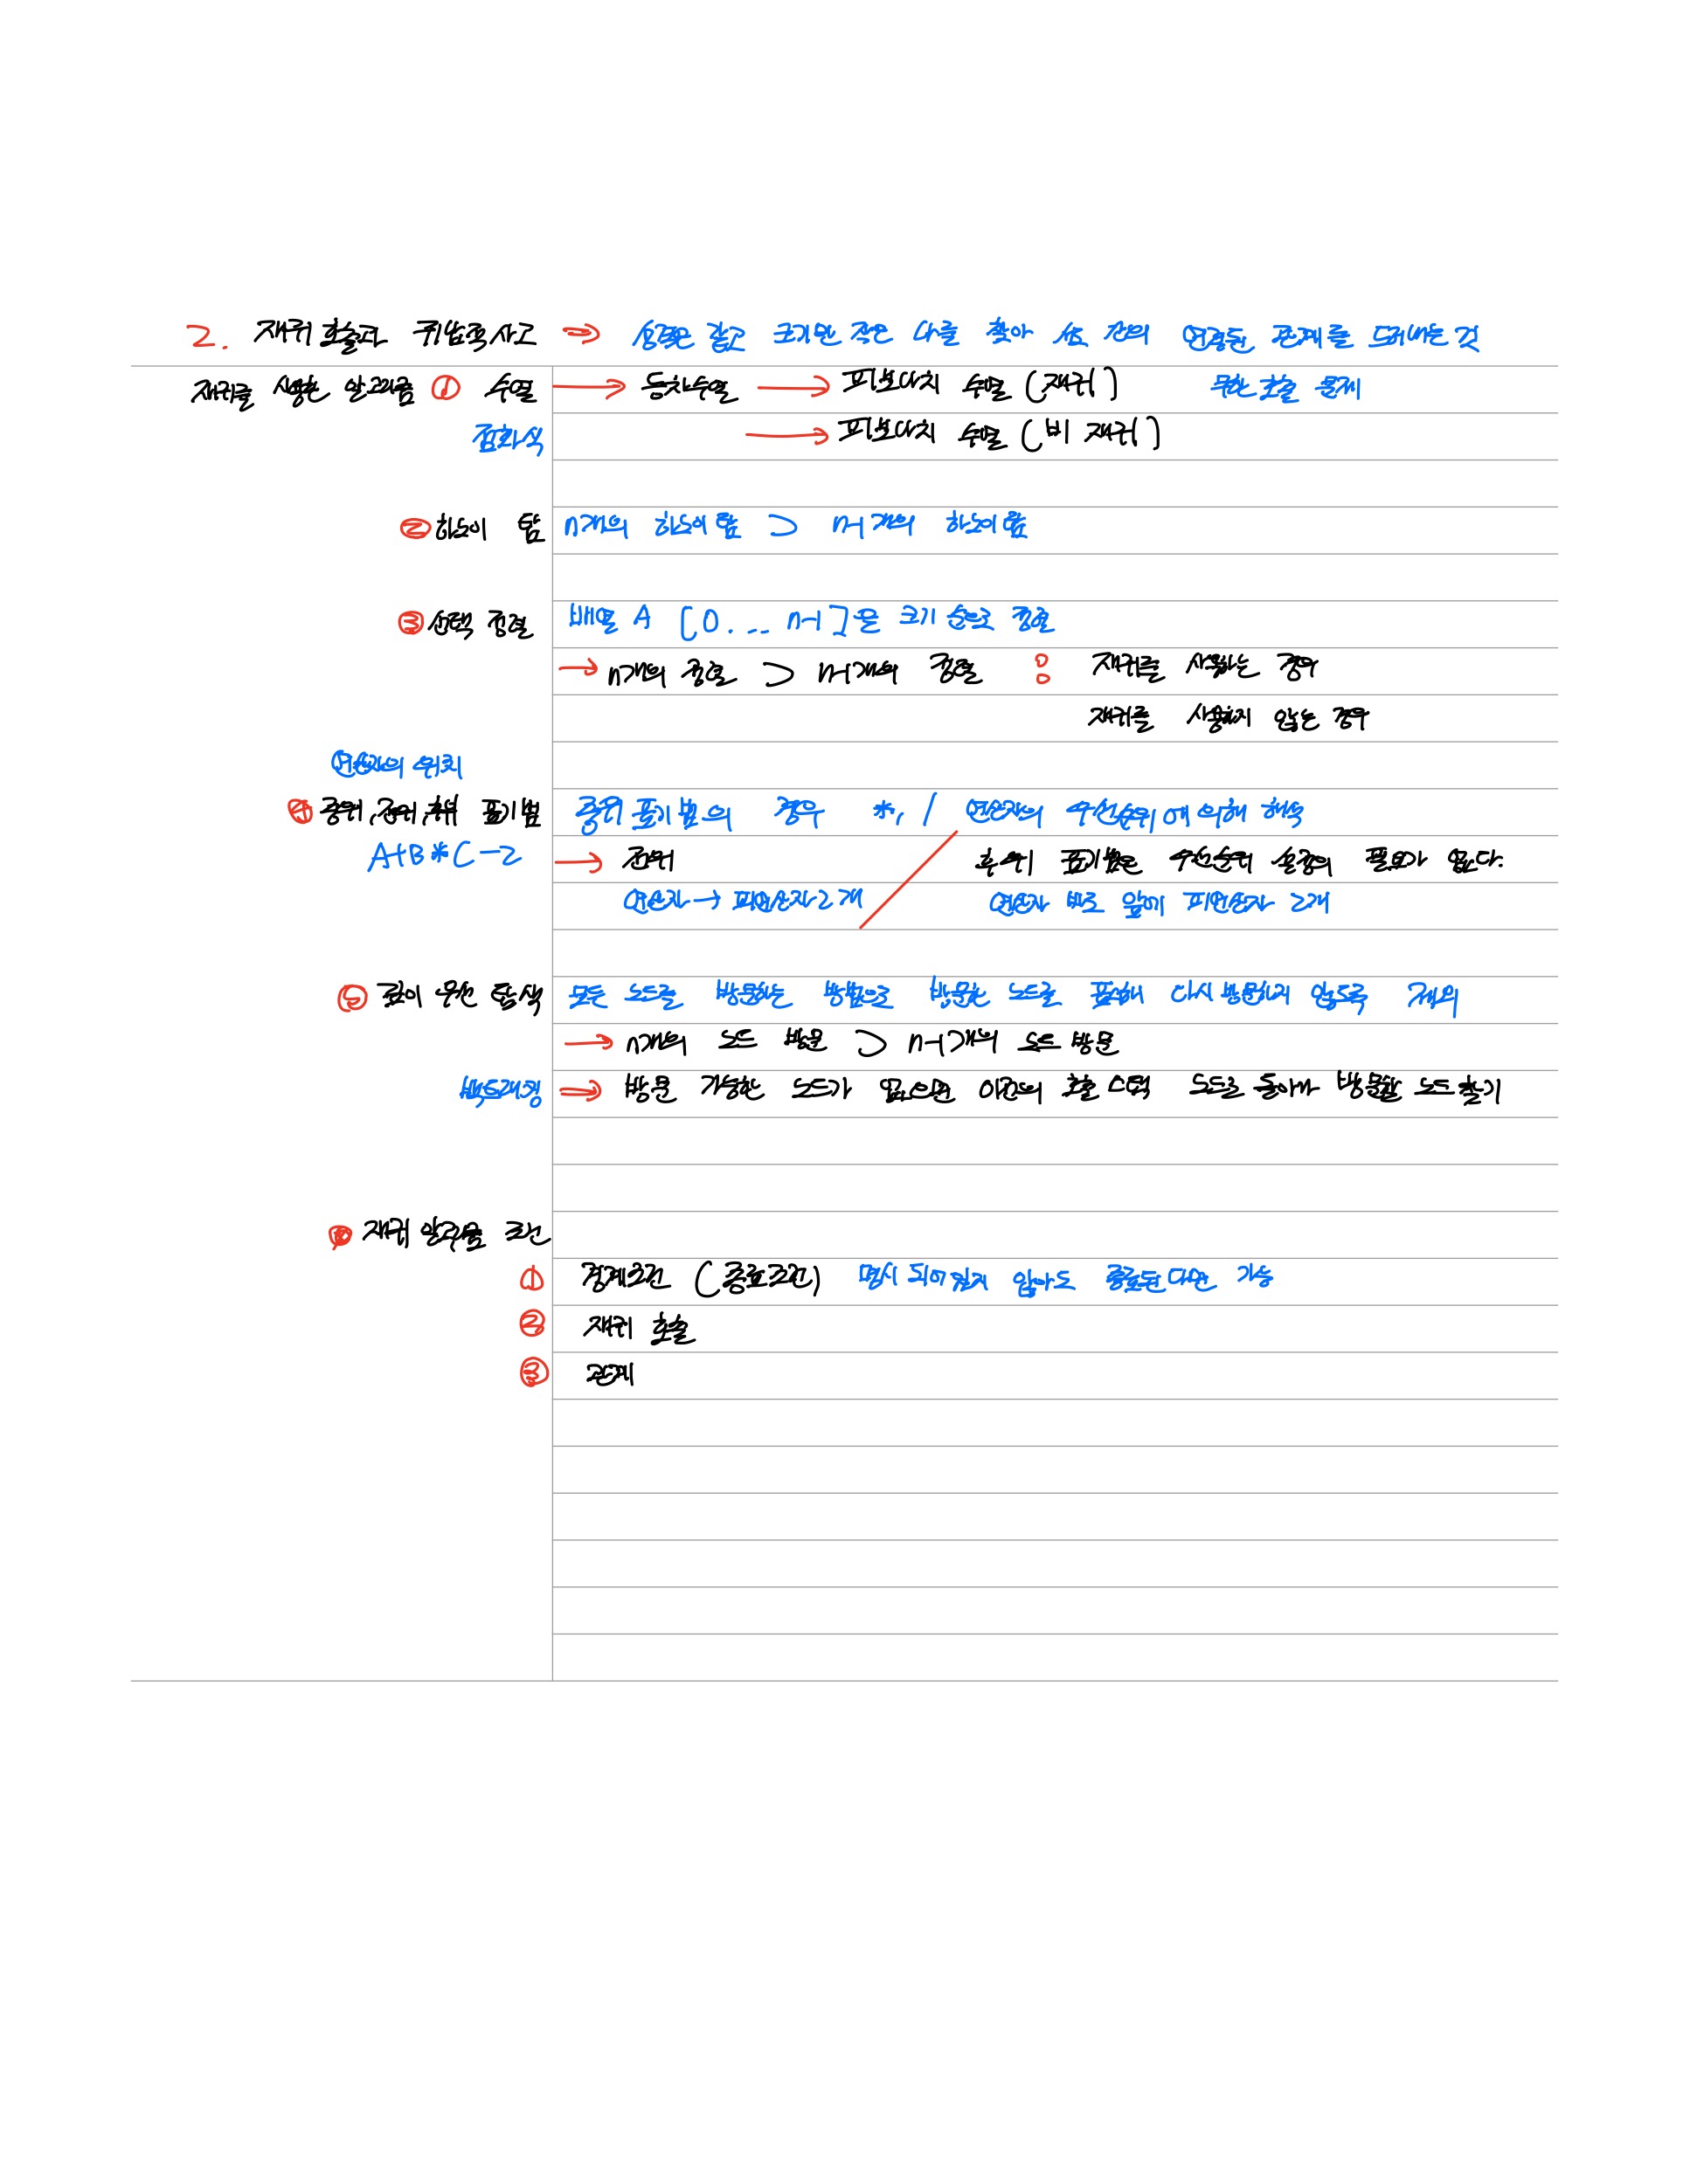 2. 재귀 호출과 귀납적 사고 → 성격은 같고 크기만 작은 나를 찾아 서로 간의 연결된 관계를 드러내는 것
재귀를 사용한 알고리즘 ① 수열 → 등차수열 → 피보나치 수열 (재귀) 무한 호출 문제
점화식 → 피보나치 수열 (비 재귀)
② 하노이 탑 n개의 하노이탑 ⊃ n-1개의 하노이탑
③ 선택 정렬 배열 A [0... n-1]을 크기 순으로 정렬
→ n개의 정렬 ⊃ n-1개의 정렬 : 재귀를 사용하는 경우
재귀를 사용하지 않는 경우
연산자의 위치
④ 중위, 전위, 후위 표기법 중위 표기법의 경우 *, / 연산자의 우선순위에 의해 해석
A+B*C-2 → 전위 / 후위 표기법은 우선순위 설정의 필요가 없다.
연산자 → 피연산자 2개 연산자 바로 앞에 피연산자 2개
⑤ 깊이 우선 탐색 모든 노드를 방문하는 방법으로 방문한 노드를 표시해 다시 방문하지 않도록 제외
→ n개의 노드 방문 ⊃ n-1개의 노드 방문
백트래킹 → 방문 가능한 노드가 없으면 이전의 호출 스택 노드로 돌아가 방문할 노드 찾기
재귀 알고리즘 조건
① 경계조건 (종료조건) 명시 되어 있지 않아도 종료된다면 가능
② 재귀 호출
③ 관계